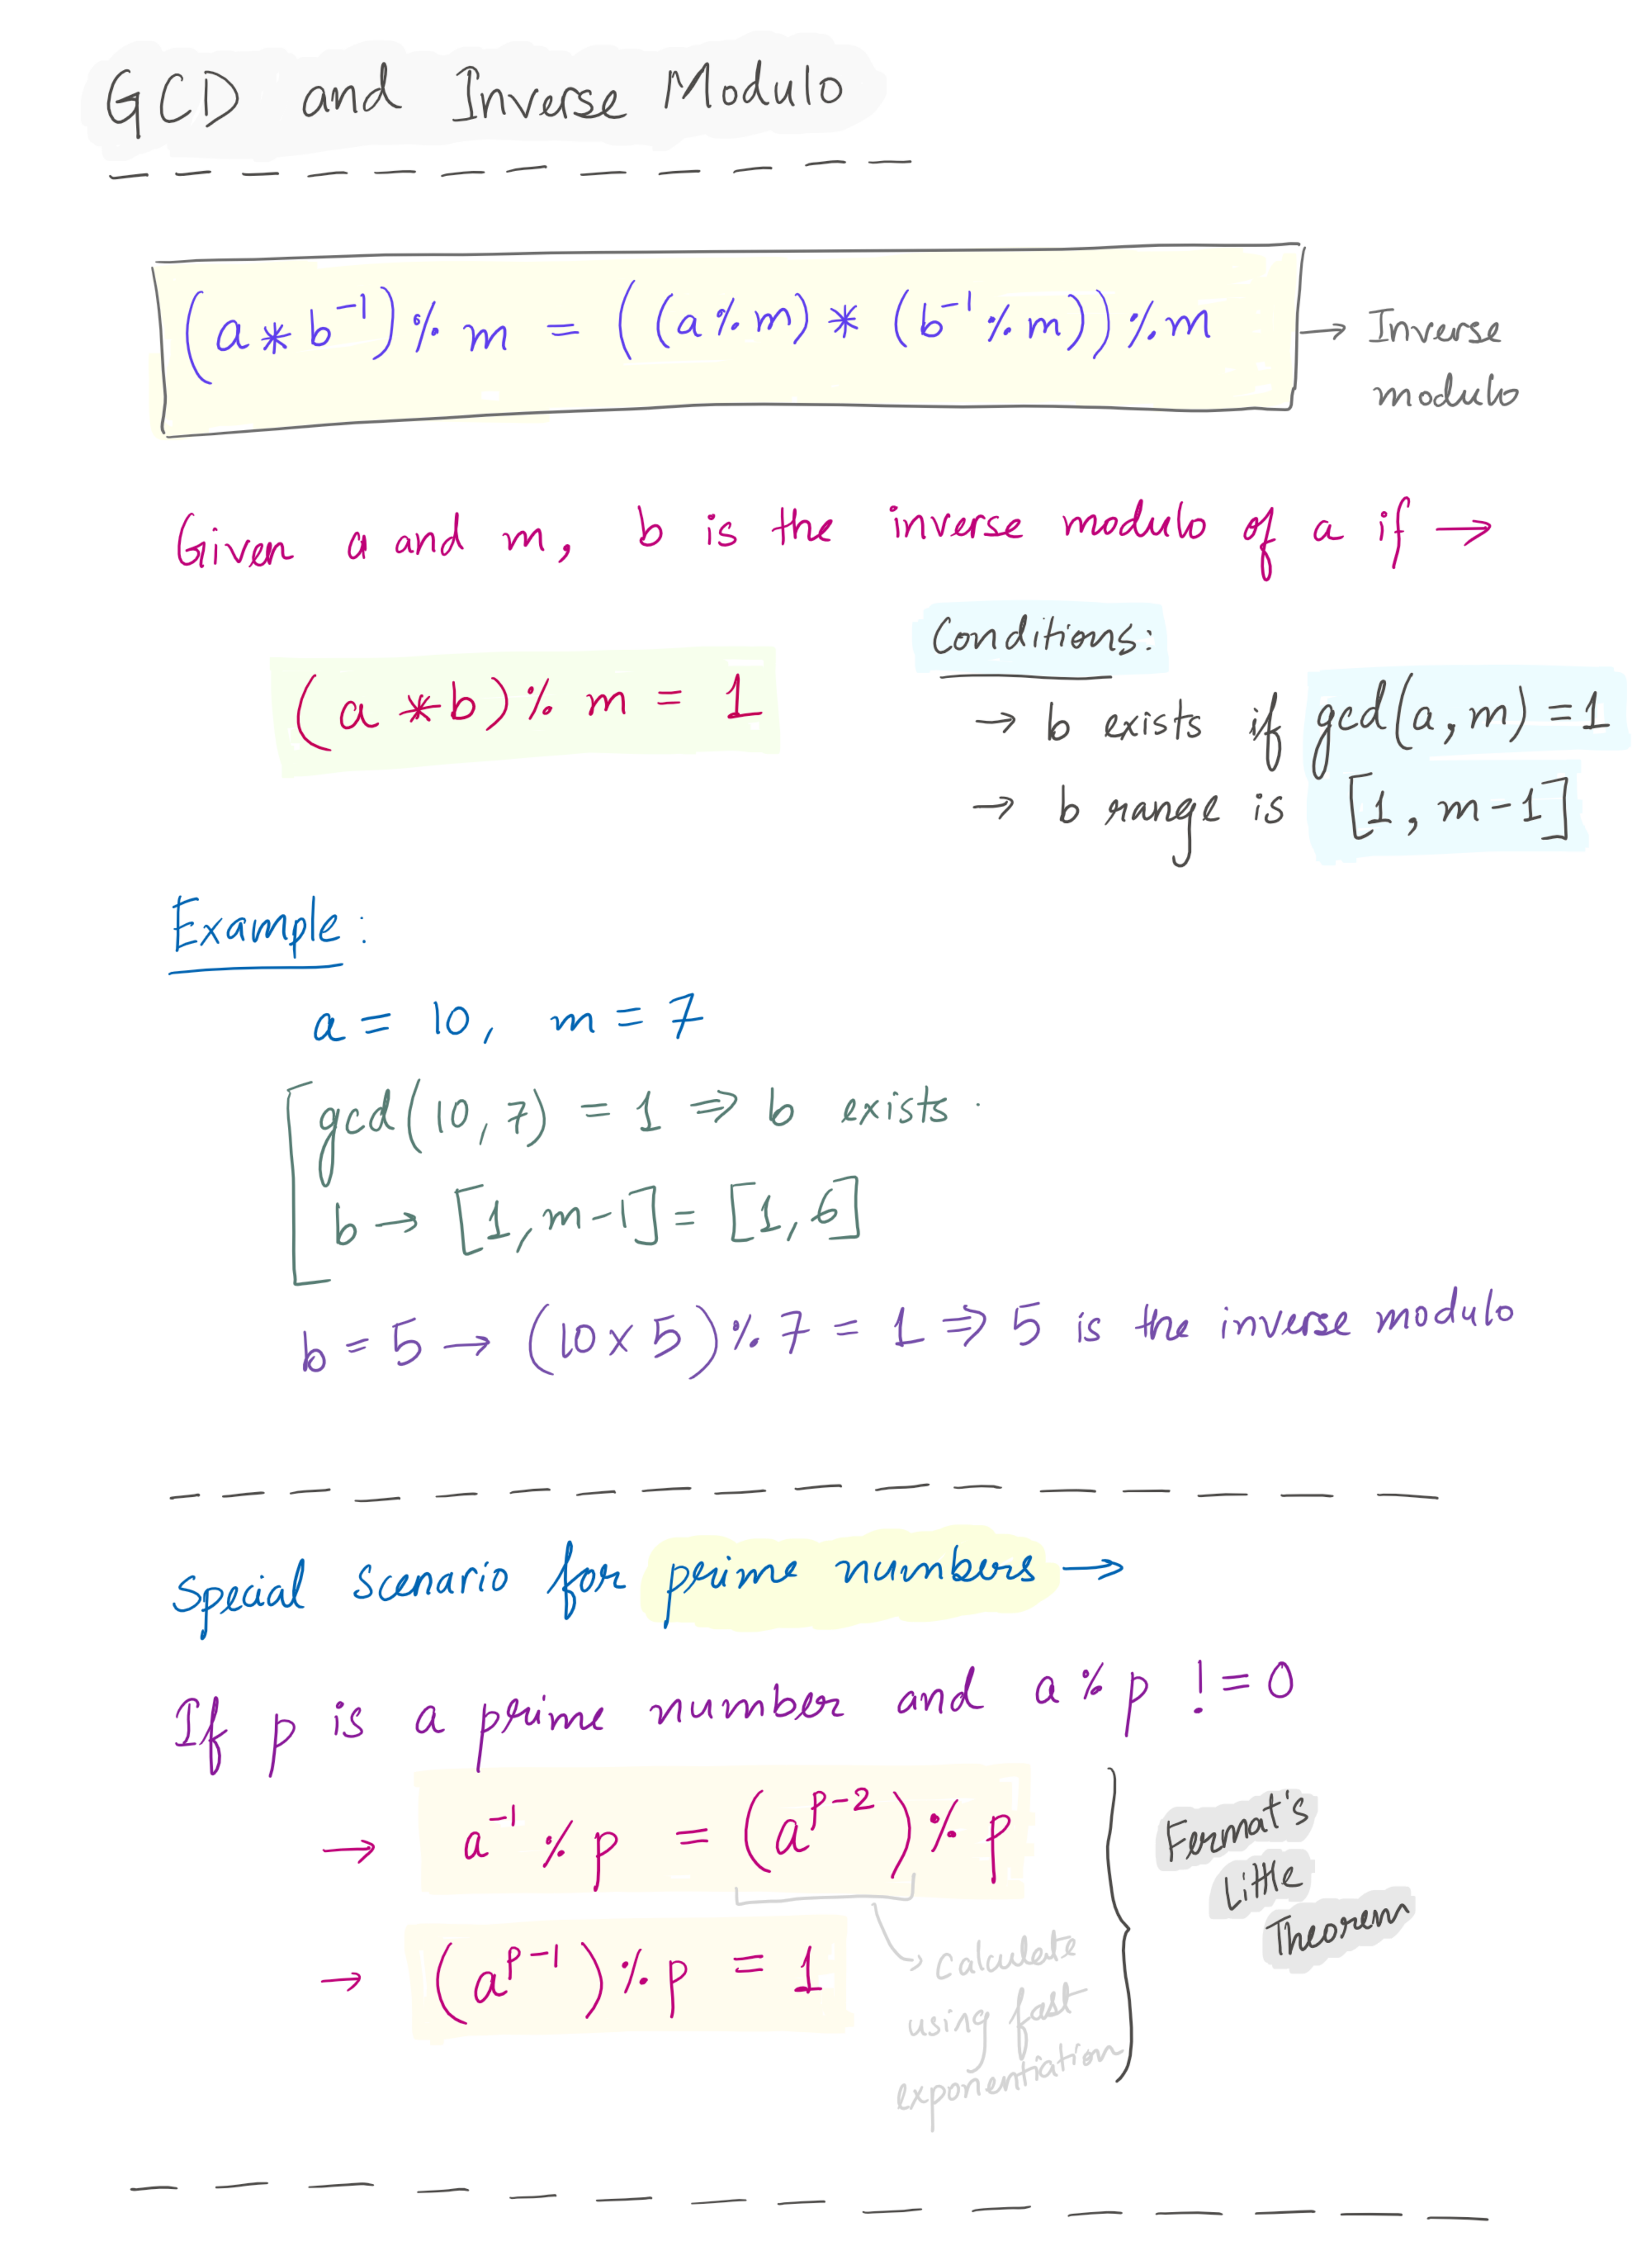 GCD and Inverse Modulo
(a * b⁻¹) % m = ((a % m) * (b⁻¹ % m)) % m → Inverse
modulo
Given a and m, b is the inverse modulo of a if →
Conditions:
(a * b) % m = 1
→ b exists if gcd(a, m) = 1
→ b range is [1, m-1]
Example:
a = 10, m = 7
gcd(10, 7) = 1 ⇒ b exists.
b → [1, m-1] = [1, 6]
b = 5 → (10 x 5) % 7 = 1 ⇒ 5 is the inverse modulo
Special scenario for prime numbers →
If p is a prime number and a % p != 0
→ a⁻¹ % p = (a^(p-2)) % p
→ (a^(p-1)) % p = 1
calculate
using fast
exponentiation
Fermat's
Little
Theorem